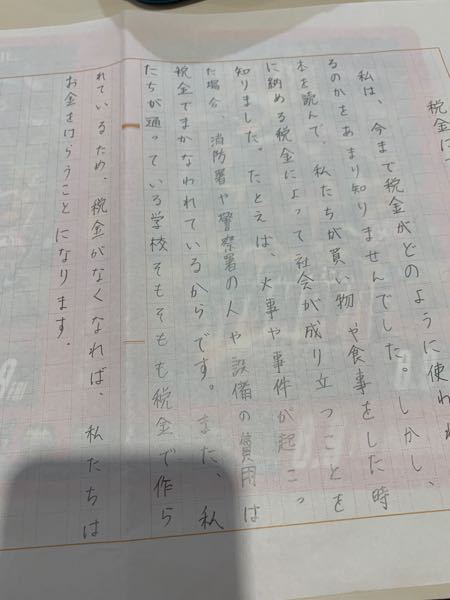 税金に
私は、今まで税金がどのように使われ
るのかをあまり知りませんでした。しかし、
本を読んで、私たちが買い物や食事をした時
に納める税金によって社会が成り立つことを
知りました。たとえば、火事や事件が起こっ
た場合、消防署や警察署の人や設備の費用は
税金でまかなわれているからです。また、私
たちが通っている学校そもそも税金で作ら
れているため、税金がなくなれば、私たちは
お金をはらうことになります。